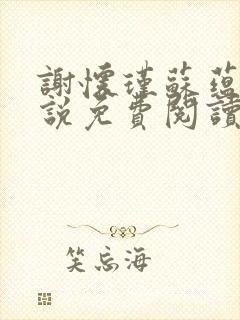 謝懷瑾蘇蘊
說免費閱讀
笑忘海